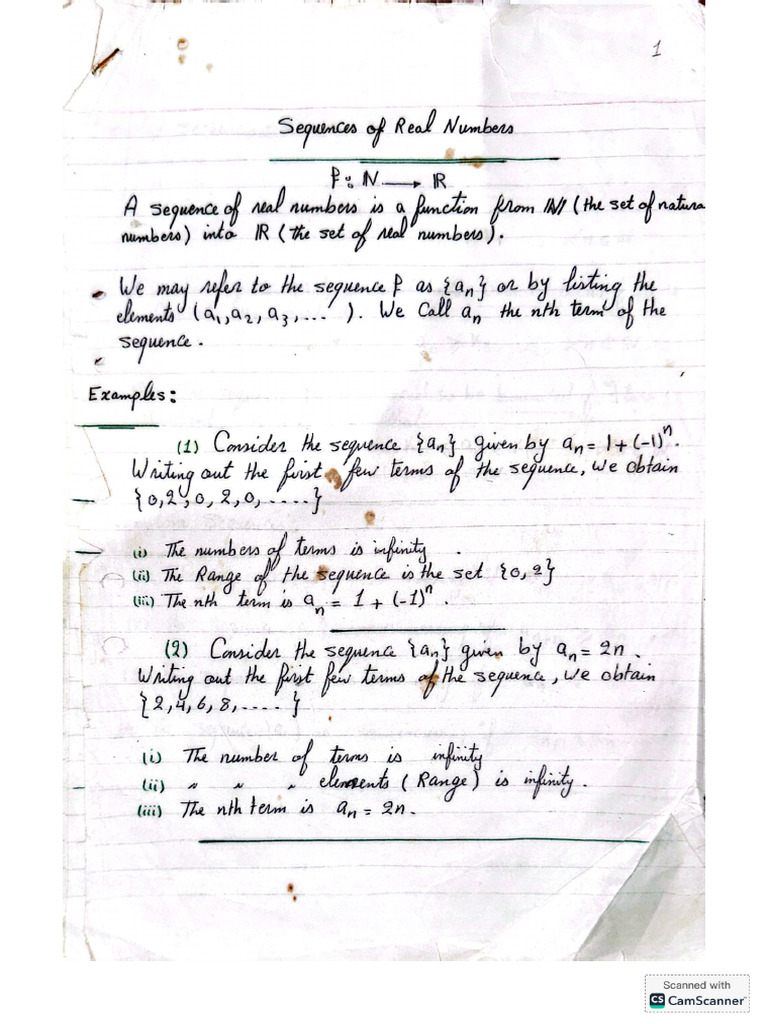 1
Sequences of Real Numbers
f: ℕ → ℝ
A sequence of real numbers is a function from ℕ (the set of natura
numbers) into ℝ (the set of real numbers).
We may refer to the sequence f as {aₙ} or by listing the
elements (a₁, a₂, a₃, ... ). We Call aₙ the nth term of the
sequence.
Examples:
(1) Consider the sequence {aₙ} given by aₙ = 1 + (-1)ⁿ.
Writing out the first few terms of the sequence, we obtain
{0, 2, 0, 2, 0, ....}
(i) The numbers of terms is infinity .
(ii) The Range of the sequence is the set {0, 2}
(iii) The nth term is aₙ = 1 + (-1)ⁿ.
(2) Consider the sequence {aₙ} given by aₙ = 2n.
Writing out the first few terms of the sequence, we obtain
{2, 4, 6, 8, .... }
(i) The number of terms is infinity
(ii) " " " elements (Range) is infinity.
(iii) The nth term is aₙ = 2n.
Scanned with
CS CamScanner